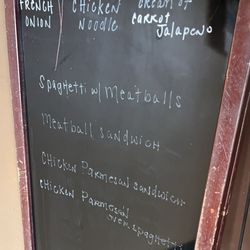 FRENCH ONION
CHICKEN NOODLE
CREAM OF CARROT JALAPENO
Spaghetti w/ Meatballs
Meatball Sandwich
Chicken Parmesan Sandwich
Chicken Parmesan
over spaghetti